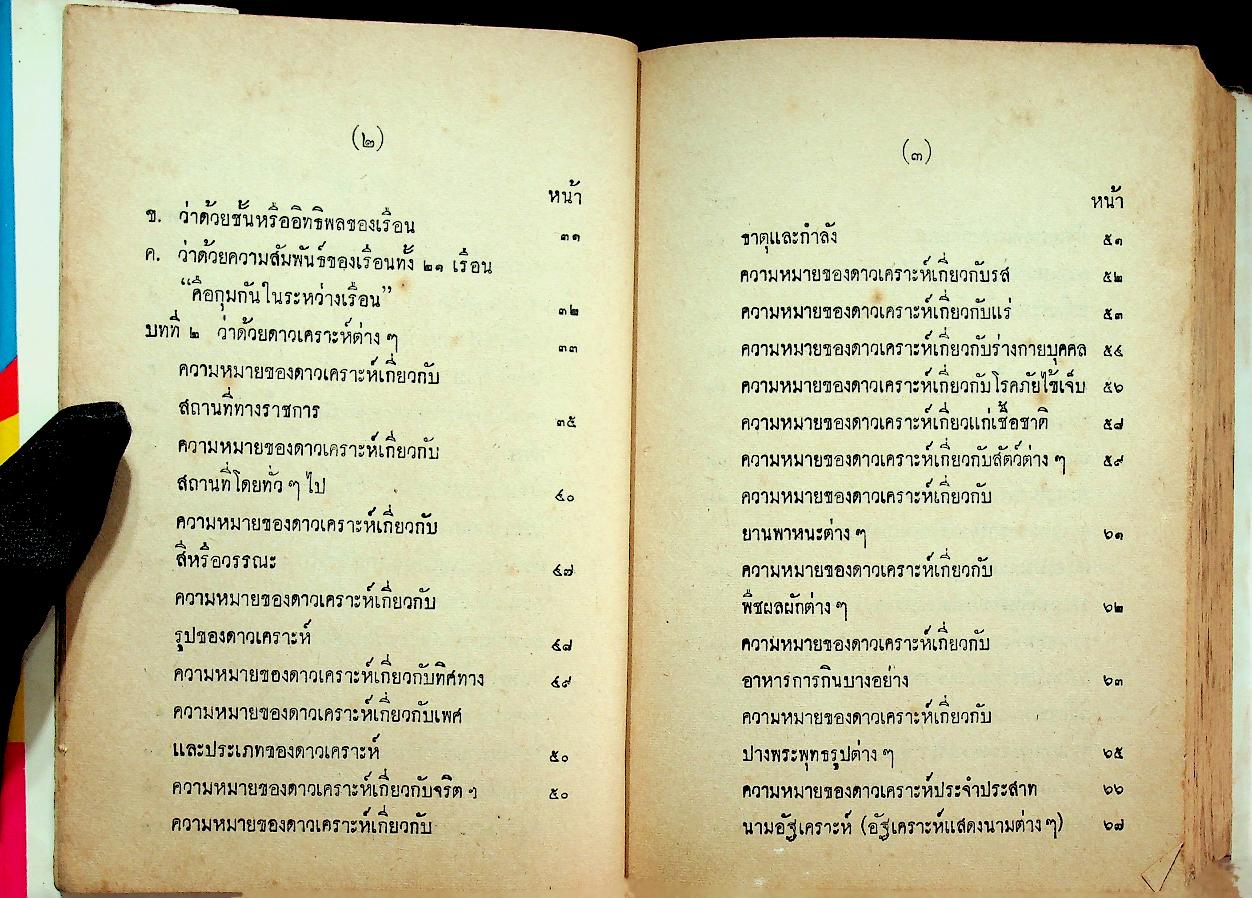 (๒)
หน้า
ข. ว่าด้วยชั้นหรืออิทธิพลของเรือน ๓๑
ค. ว่าด้วยความสัมพันธ์ของเรือนทั้ง ๒๑ เรือน
“คือกุมกันในระหว่างเรือน” ๓๒
บทที่ ๒ ว่าด้วยดาวเคราะห์ต่าง ๆ ๓๓
ความหมายของดาวเคราะห์เกี่ยวกับ
สถานที่ทางราชการ ๓๕
ความหมายของดาวเคราะห์เกี่ยวกับ
สถานที่โดยทั่ว ๆ ไป ๔๐
ความหมายของดาวเคราะห์เกี่ยวกับ
สีหรือวรรณะ ๔๗
ความหมายของดาวเคราะห์เกี่ยวกับ
รูปของดาวเคราะห์ ๔๘
ความหมายของดาวเคราะห์เกี่ยวกับทิศทาง ๔๙
ความหมายของดาวเคราะห์เกี่ยวกับเพศ
และประเภทของดาวเคราะห์ ๕๐
ความหมายของดาวเคราะห์เกี่ยวกับจริต ๆ ๕๐
ความหมายของดาวเคราะห์เกี่ยวกับ
(๓)
หน้า
ธาตุและกำลัง ๕๑
ความหมายของดาวเคราะห์เกี่ยวกับรส ๕๒
ความหมายของดาวเคราะห์เกี่ยวกับแร่ ๕๓
ความหมายของดาวเคราะห์เกี่ยวกับร่างกายบุคคล ๕๔
ความหมายของดาวเคราะห์เกี่ยวกับโรคภัยไข้เจ็บ ๕๖
ความหมายของดาวเคราะห์เกี่ยวแก่เชื้อชาติ ๕๘
ความหมายของดาวเคราะห์เกี่ยวกับสัตว์ต่าง ๆ ๕๙
ความหมายของดาวเคราะห์เกี่ยวกับ
ยานพาหนะต่าง ๆ ๖๑
ความหมายของดาวเคราะห์เกี่ยวกับ
พืชผลผักต่าง ๆ ๖๒
ความหมายของดาวเคราะห์เกี่ยวกับ
อาหารการกินบางอย่าง ๖๓
ความหมายของดาวเคราะห์เกี่ยวกับ
ปางพระพุทธรูปต่าง ๆ ๖๕
ความหมายของดาวเคราะห์ประจำประสาท ๖๖
นามอัฐเคราะห์ (อัฐเคราะห์แสดงนามต่าง ๆ) ๖๗